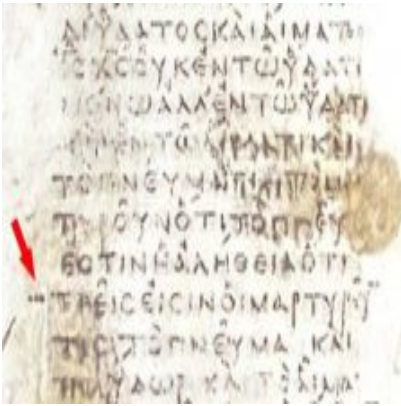 ΔΙΥΔΑΤΟϹΚΑΙΑΙΜΑΤΟ
ΧϹΟΥΚΕΝΤΩΥΔΑΤΙ
ΜΟΝΩΑΛΛΕΝΤΩΥΔΑΤΙ
ΕΝΤΩ ΚΑΙ
ΤΟΠΝΕΥΜΑ
ΤΥΡΟΥΝΟΤΙΤΟΠΝΕΥ
ΕϹΤΙΝΗΑΛΗΘΕΙΑΟΤΙ
ΤΡΕΙϹΕΙϹΙΝΟΙΜΑΡΤΥΡΟΥ
ΤΕϹΤΟΠΝΕΥΜΑ ΚΑΙ
ΤΟΥΔΩΡ ΚΑΙ ΤΟΑΙΜΑ